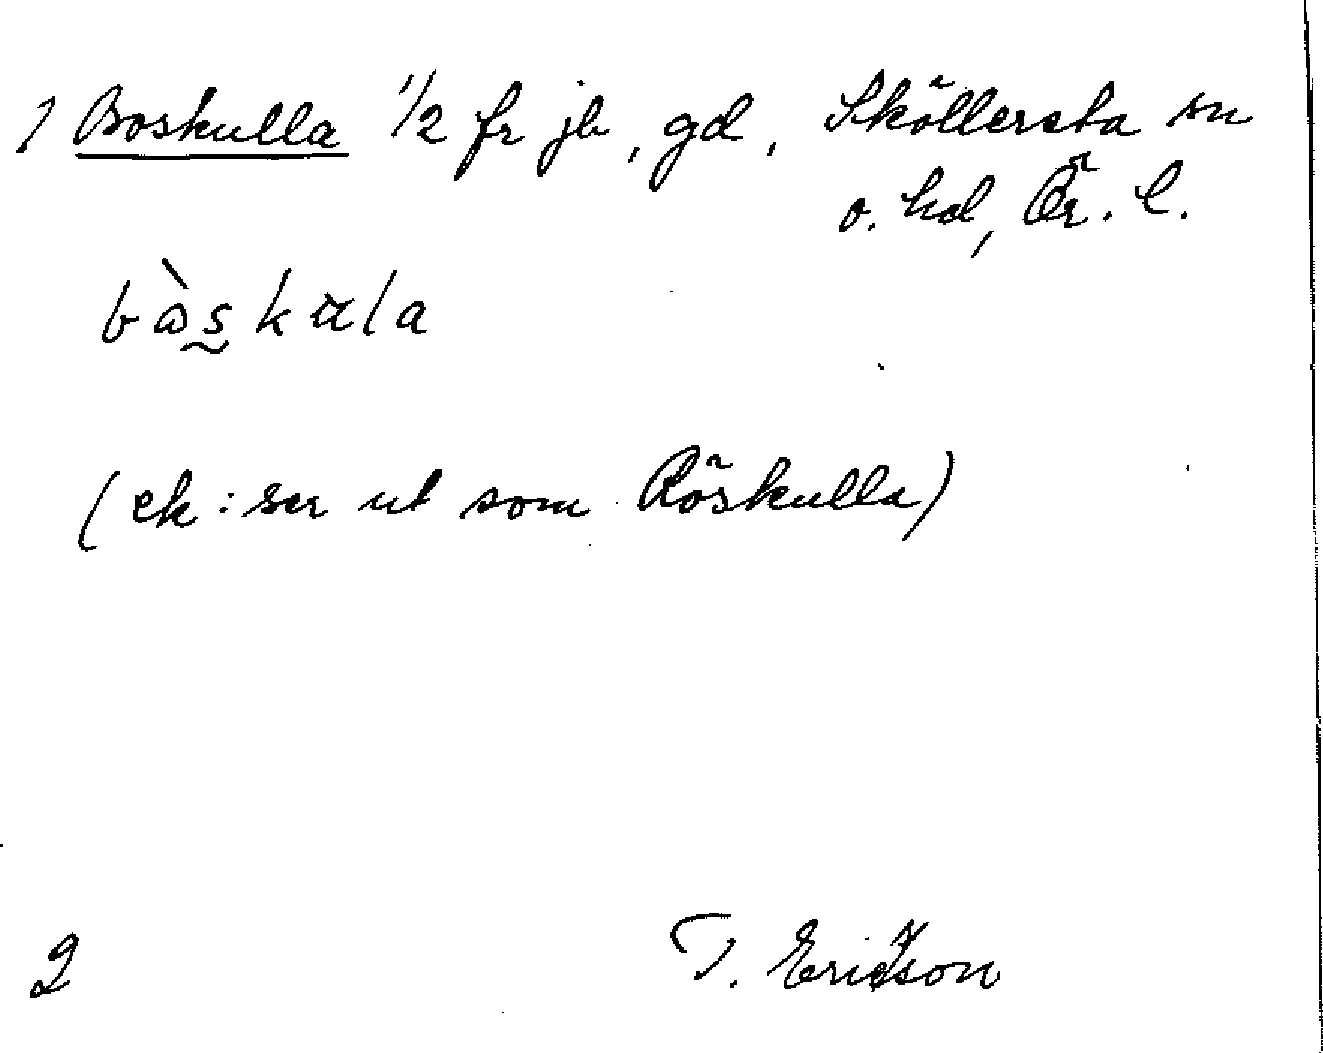 1 Boskulla 1/2 fr jb, gd, Sköllersta sn
o. hd, Ör. l.
(ek: ser ut som Röskulla)
2 T. Ericson